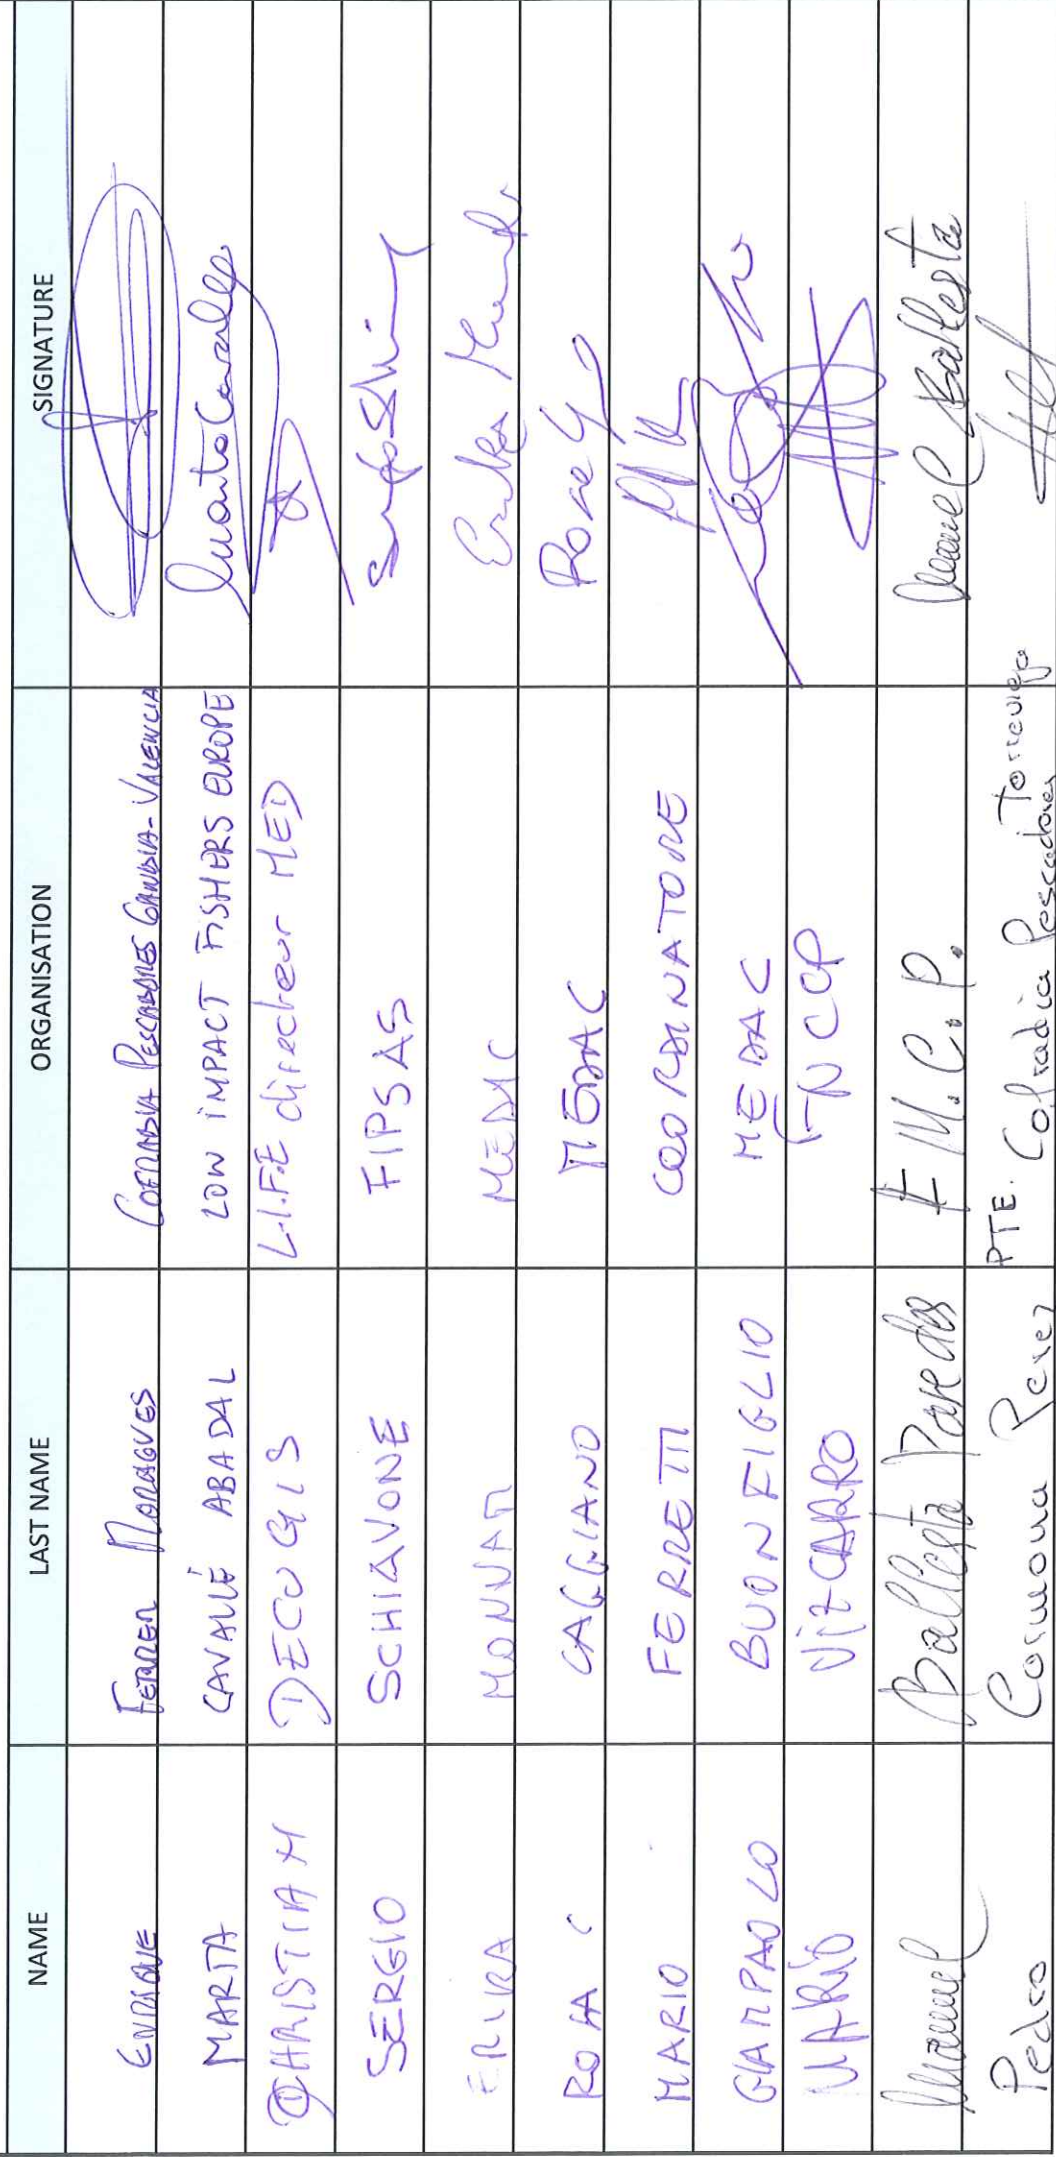 NAME LAST NAME ORGANISATION SIGNATURE
ENRIQUE FERRER MORAGUES COFRADIA PESCADORES GANDIA-VALENCIA
MARTA CAVALLÉ ABADAL LOW IMPACT FISHERS EUROPE Marta Cavallé
CHRISTIAN DECUGIS L.I.F.E directeur MED
SERGIO SCHIAVONE FIPSAS
ERIKA MONNATI MEDAC Erika
ROSA CAGGIANO MEDAC Rosa
MARIO FERRETTI COORDINATORE
GIAMPAOLO BUONFIGLIO MEDAC
MARIO VIZCARRO FNCP
Manuel Ballesta Paredes F M.C.P. Manuel Ballesta
Pedro Carmona Perez PTE. Cofradia Pescadores Torrevieja